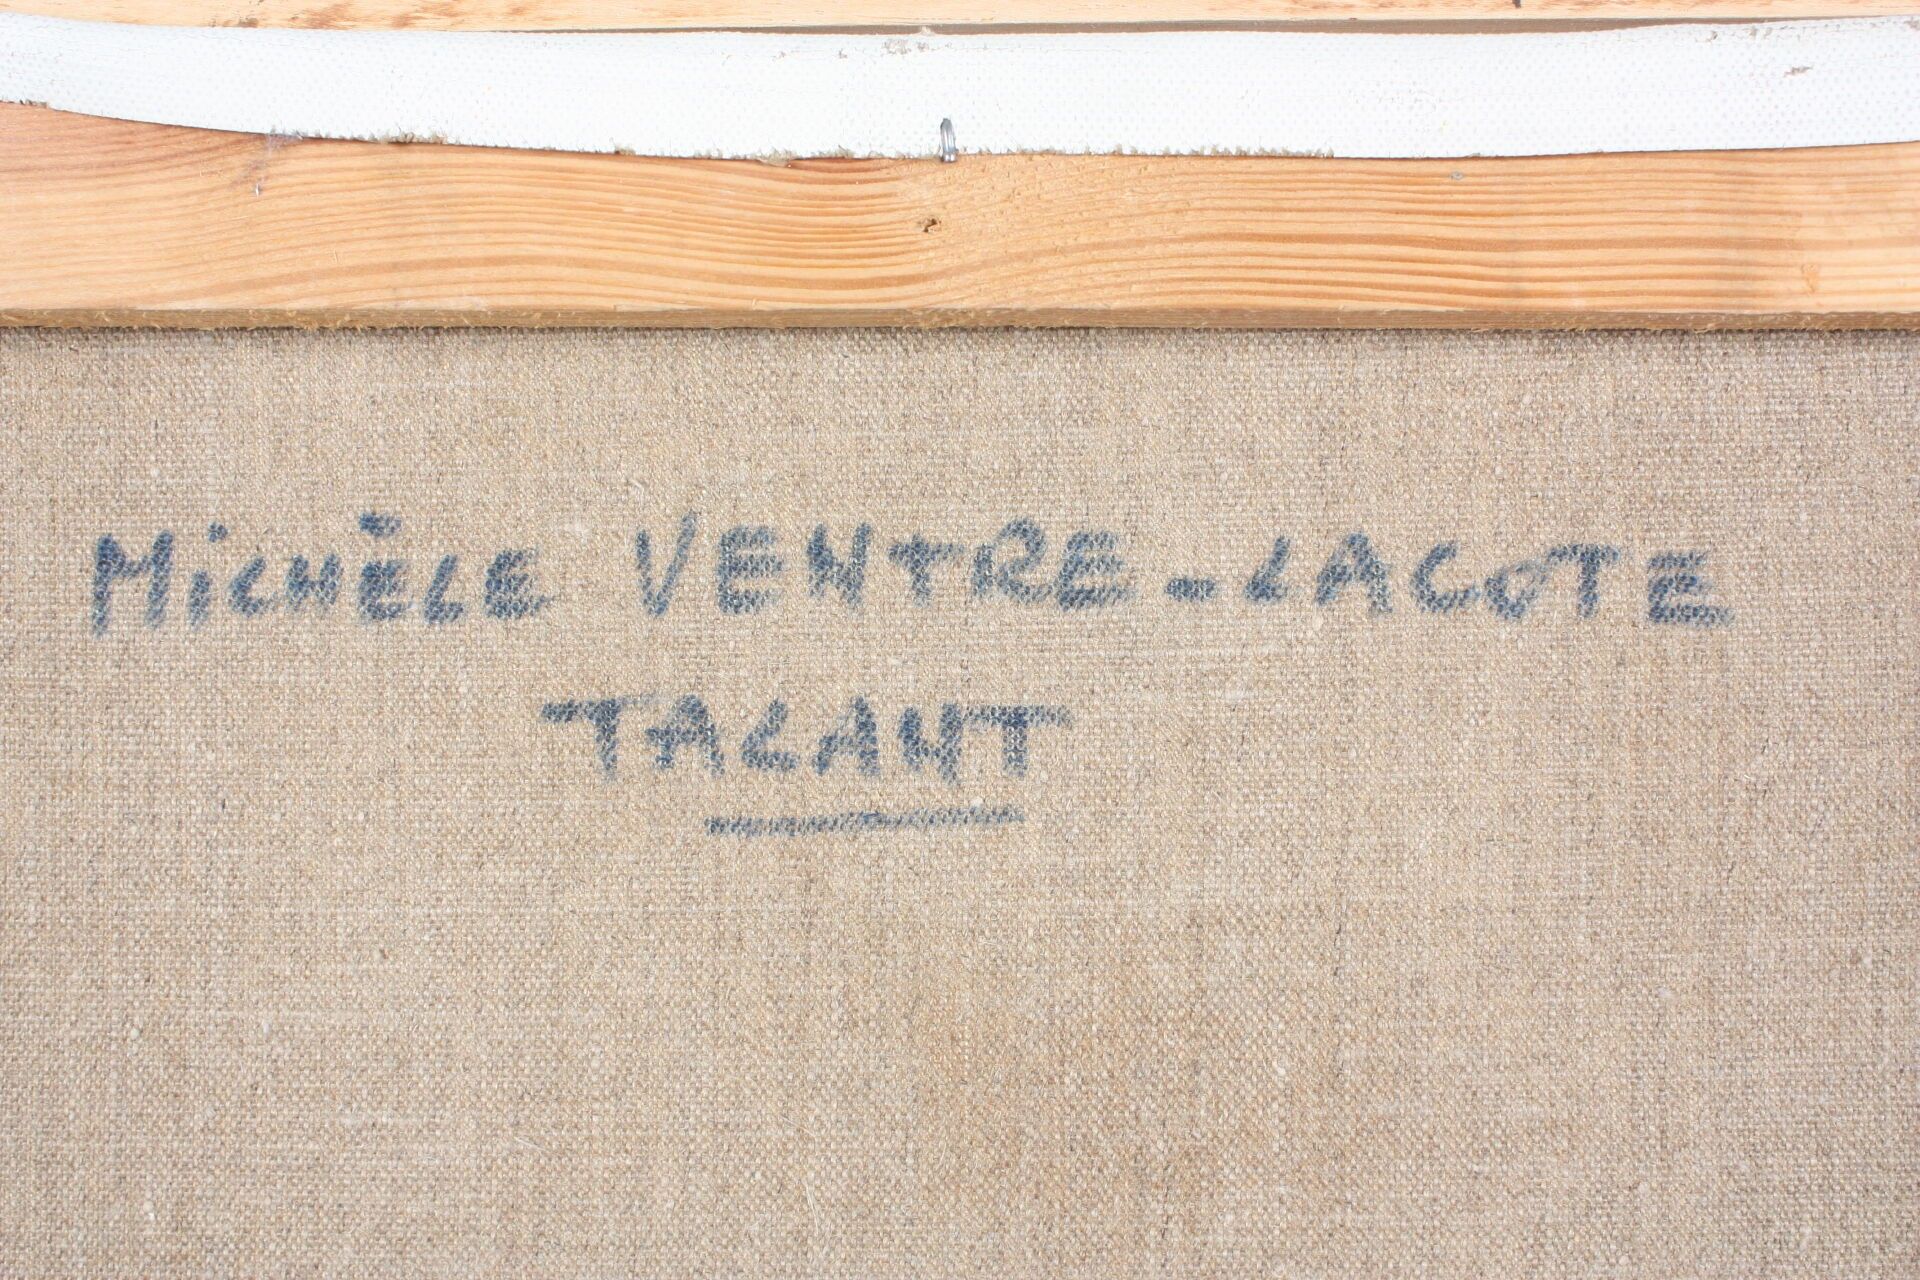 MiCHÈLE VENTRE-LACOTE
TALANT